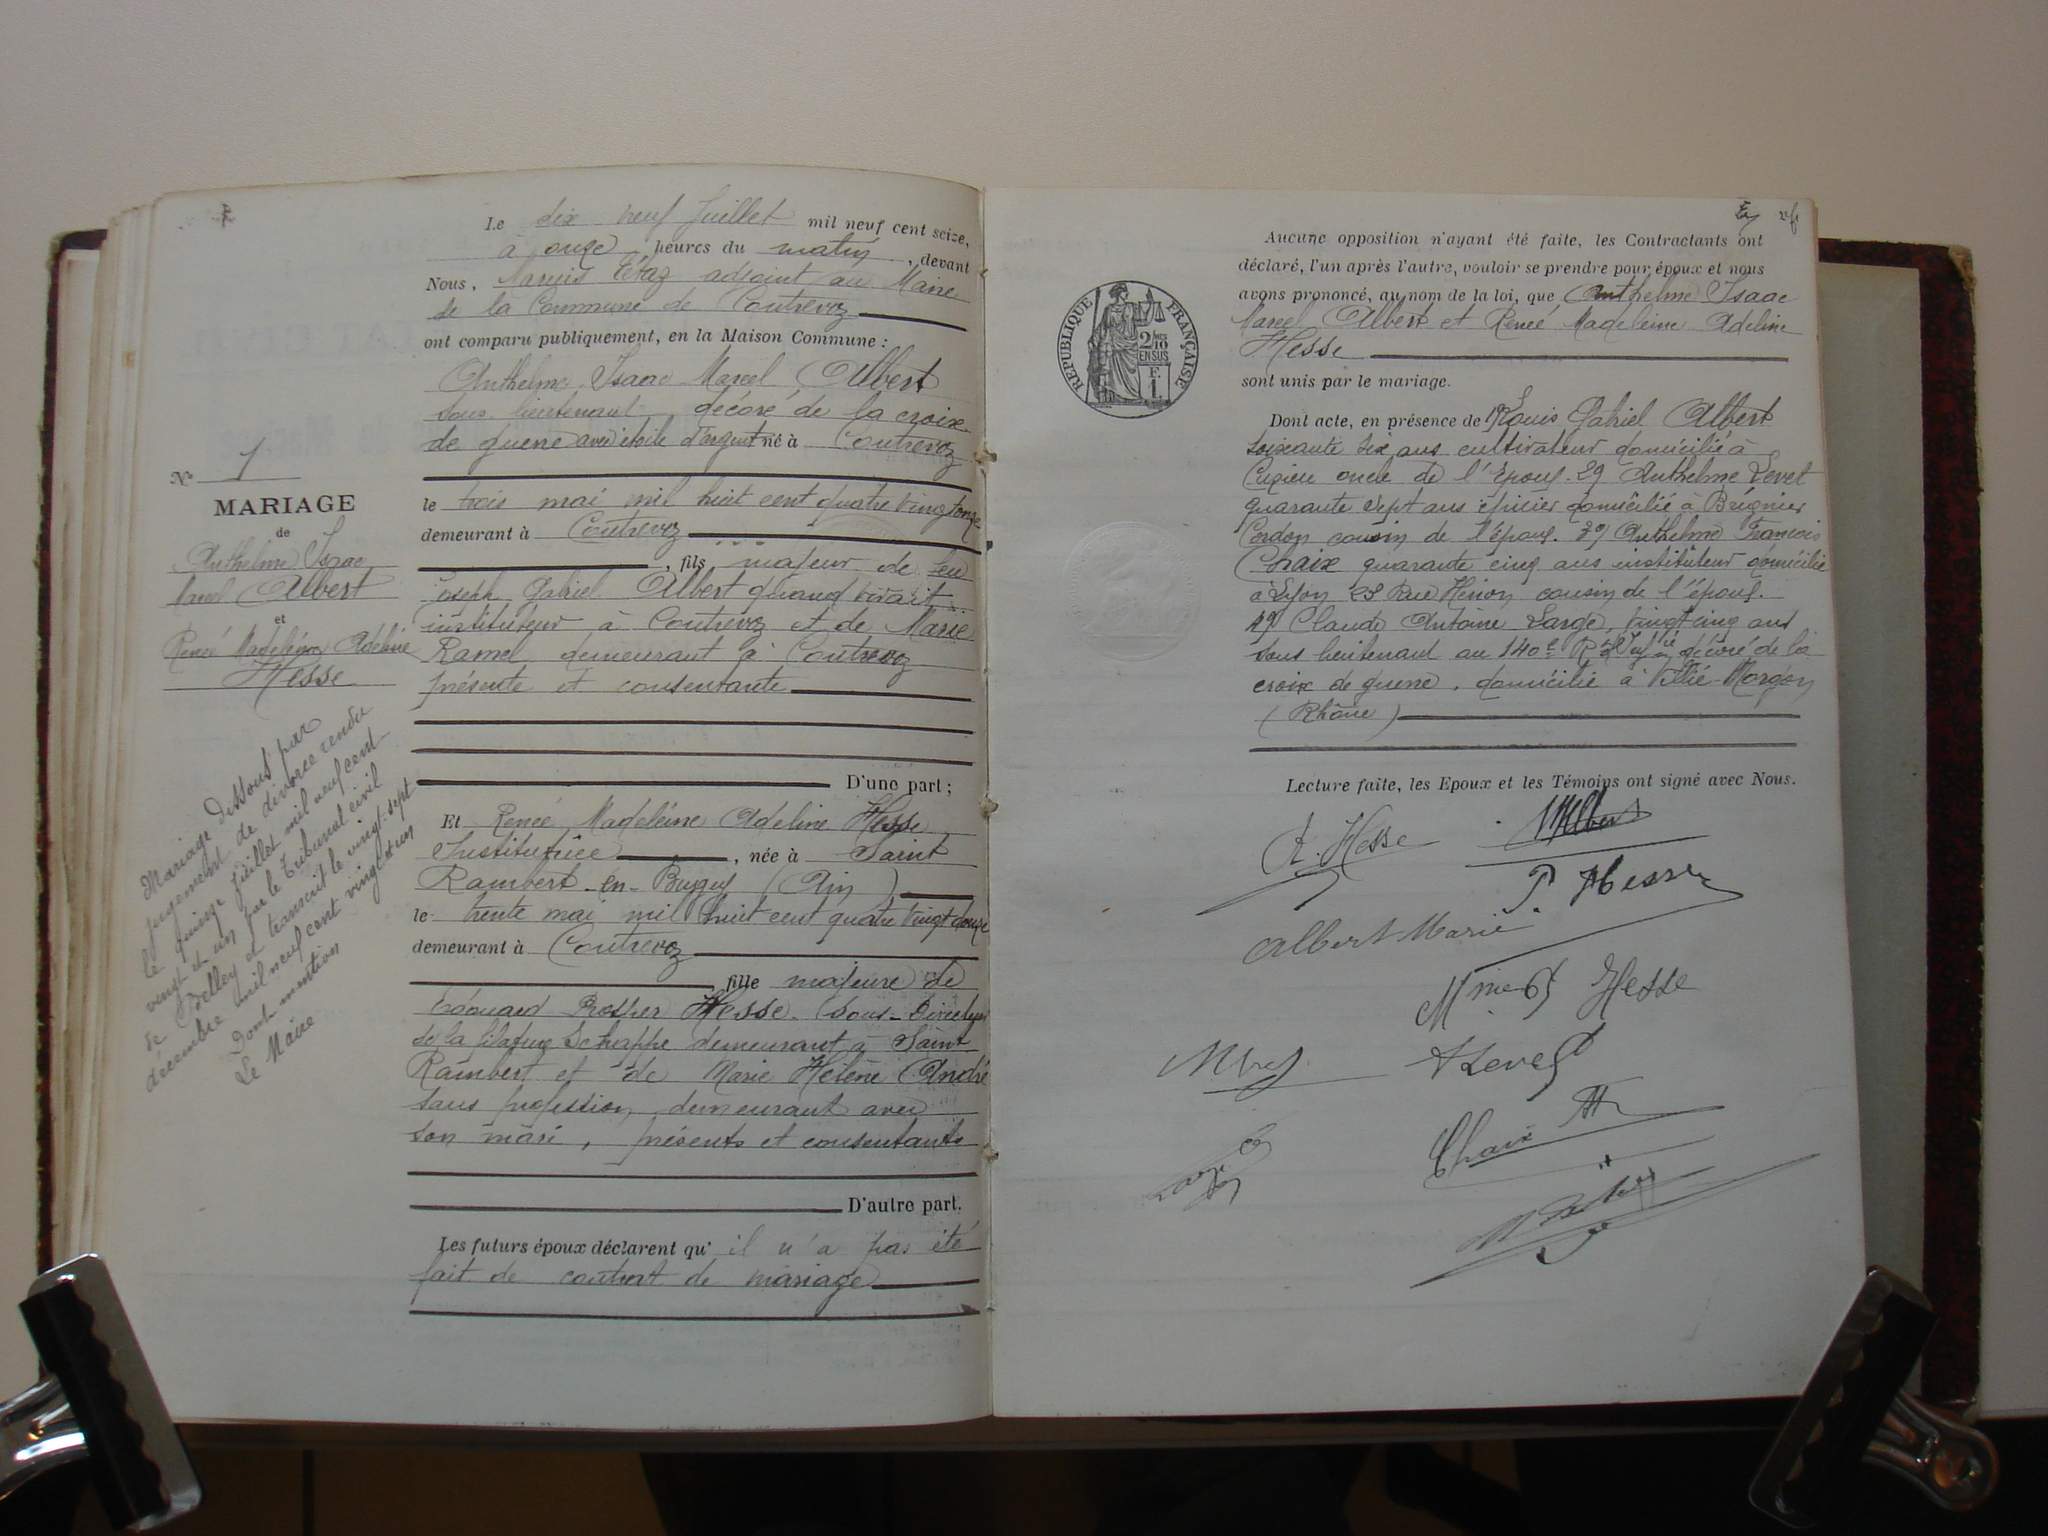 Le dix neuf Juillet mil neuf cent seize,
à onze heures du matin, devant
Nous, Tétaz adjoint au Maire
de la Commune de Contrevoz
ont comparu publiquement, en la Maison Commune :
Anthelme Isaac Marcel Albert
sous-lieutenant, décoré de la croix
de guerre avec étoile d'argent né à Contrevoz
le trois mai mil huit cent quatre vingt onze
demeurant à Contrevoz
, fils majeur de feu
Joseph Gabriel Albert quand vivait
instituteur à Contrevoz et de Marie
Ramel demeurant à Contrevoz
présente et consentante
D'une part ;
Et Renée Madeleine Adeline Hesse
Institutrice, née à Saint
Rambert-en-Bugey (Ain)
le trente mai mil huit cent quatre vingt douze
demeurant à Contrevoz
, fille majeure de
Edouard Prosper Hesse. Sous-Directeur
de la filature Schappe demeurant à Saint
Rambert et de Marie Hélène André
sans profession, demeurant avec
son mari, présents et consentants
D'autre part.
Les futurs époux déclarent qu'il n'a pas été
fait de contrat de mariage
N° 1
MARIAGE
de
Anthelme Isaac
Marcel Albert
et
Renée Madeleine Adeline
Hesse
Mariage dissous par
jugement de divorce rendu
le quinze juillet mil neuf cent
vingt et un par le Tribunal civil
de Belley et transcrit le vingt-sept
décembre mil neuf cent vingt et un
Dont mention
Le Maire
RÉPUBLIQUE FRANÇAISE
2/10
EN SUS
F.
1
Aucune opposition n'ayant été faite, les Contractants ont
déclaré, l'un après l'autre, vouloir se prendre pour époux et nous
avons prononcé, au nom de la loi, que Anthelme Isaac
Marcel Albert et Renée Madeleine Adeline
Hesse
sont unis par le mariage.
Dont acte, en présence de 1° Louis Gabriel Albert
soixante six ans cultivateur domicilié à
Cuzieu oncle de l'époux. 2° Anthelme Levet
quarante sept ans épicier domicilié à Brégnier
Cordon cousin de l'époux. 3° Anthelme François
Chaix quarante cinq ans instituteur domicilié
à Lyon 28 Rue Hénon cousin de l'époux.
4° Claude Antoine Large, vingt cinq ans
sous lieutenant au 140e Rt d'Infie décoré de la
croix de guerre, domicilié à Villié-Morgon
(Rhône)
Lecture faite, les Epoux et les Témoins ont signé avec Nous.
R. Hesse
MAlbert
P. Hesse
Albert Marie
Mme Hesse
ALevet
Chaix
Large